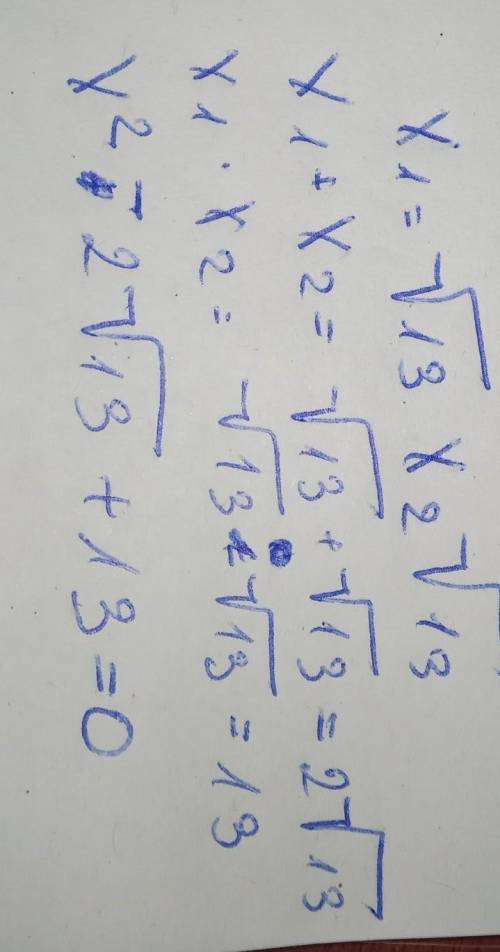 x1=√13 x2√13
x1+x2=√13+√13=2√13
x1·x2=√13·√13=13
x²-2√13+13=0